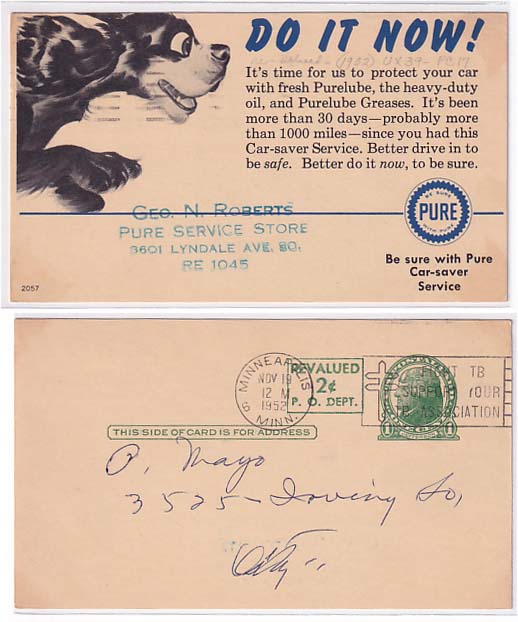 DO IT NOW!
(1952) UX39 - PC17
It's time for us to protect your car
with fresh Purelube, the heavy-duty
oil, and Purelube Greases. It's been
more than 30 days—probably more
than 1000 miles—since you had this
Car-saver Service. Better drive in to
be safe. Better do it now, to be sure.
GEO. N. ROBERTS
PURE SERVICE STORE
3601 LYNDALE AVE. SO.
RE 1045
BE SURE
PURE
WITH PURE
Be sure with Pure
Car-saver
Service
2057
MINNEAPOLIS
NOV 19
12 M
1952
MINN.
REVALUED
2¢
P. O. DEPT.
FIGHT TB
SUPPORT YOUR
TB ASSOCIATION
THIS SIDE OF CARD IS FOR ADDRESS
P. Mayo
3525 - Irving So,
City